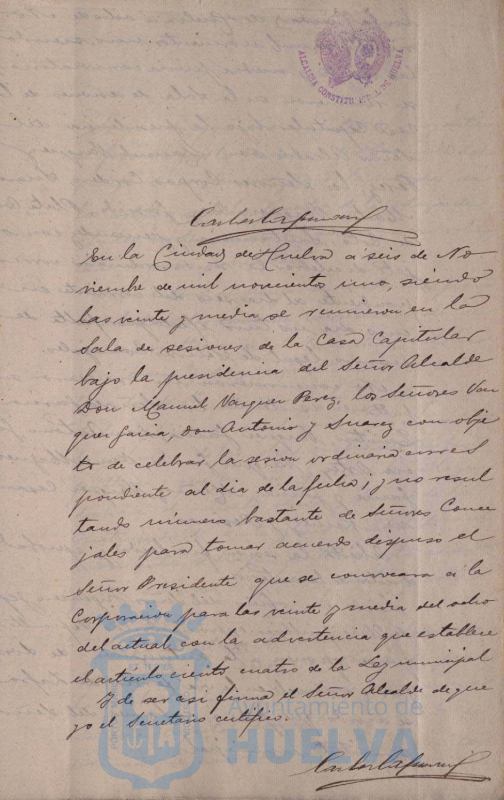 ALCALDIA CONSTITUCIONAL DE HUELVA
En la Ciudad de Huelva á seis de No
viembre de mil novecientos uno, siendo
las veinte y media se reunieron en la
Sala de sesiones de la Casa Capitular
bajo la presidencia del Señor Alcalde
Don Manuel Vazquez Perez, los Señores Vaz
quez Garcia, don Antonio y Suarez con obje
to de celebrar la sesion ordinaria corres
pondiente al dia de la fecha; y no resul
tando número bastante de Señores Conce
jales para tomar acuerdo dispuso el
Señor Presidente que se convocara á la
Corporacion para las veinte y media del ocho
del actual con la advertencia que establece
el articulo ciento cuatro de la Ley municipal
Y de ser asi firma el Señor Alcalde de que
yo el Secretario certifico.
Ayuntamiento de
HUELVA